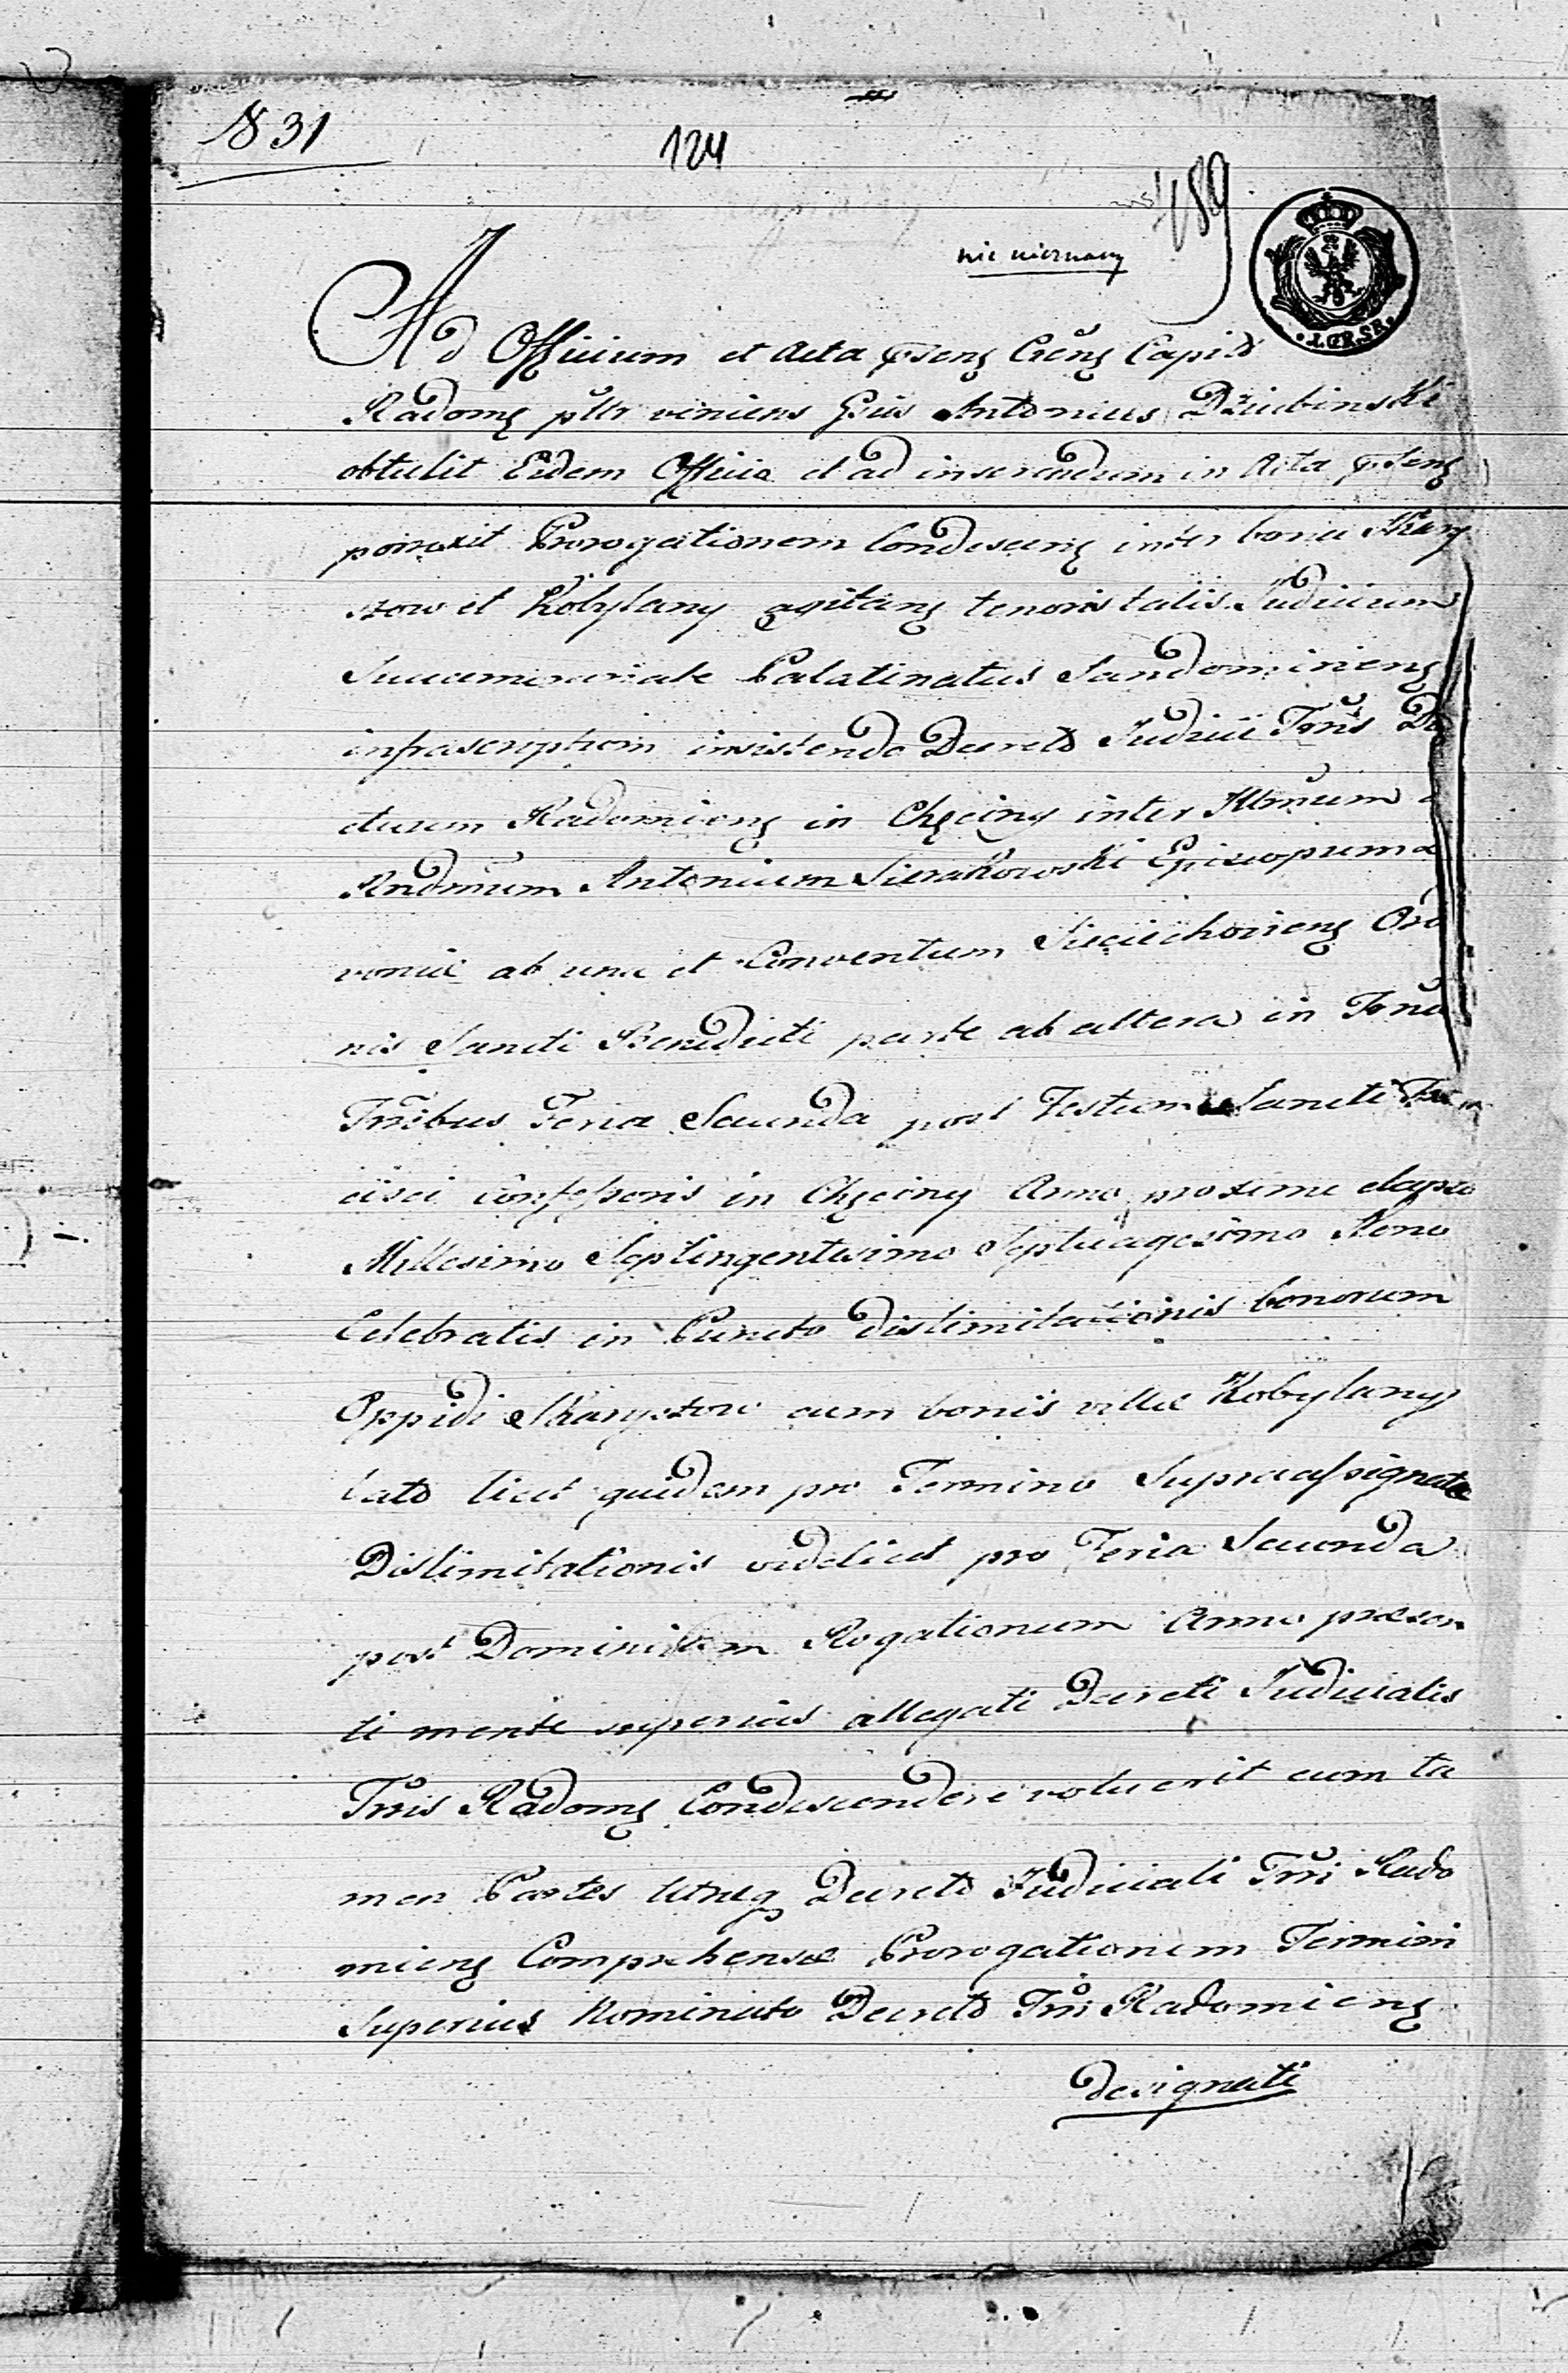 831
124
189
nie nieznany
Ad Officium et Acta pñsens Crens Capit
Radoms pltr veniens Gnus Antonius Dziubinski
obtulit Eidem Officio et ad inserendum in Acta pñsens
porrexit Prorogationem Condescens inter bona Skary
szow et Kobylany agitans tenoris talis. Judicium
Succamerariale Palatinatus Sandomiriens
infrascriptum insistendo Decreto Judicii Trris Di
cturum Radomiens in Chęciny inter Illmum
Rndmum Antonium Sierakowski Episcopum
ab una et Conventum Sieciechoviens Ord
nis Sancti Benedicti parte ab altera in
Trribus Feria Secunda post Festum Sancti Fran
cisci Confessoris in Chęciny Anno proxime elapso
Millesimo Septingentesimo Septuagesimo Nono
Celebratis in Puncto Dislimitationis bonorum
Oppidi Skaryszow cum bonis villæ Kobylany
lato licet quidem pro Termino Supraassignatæ
Dislimitationis videlicet pro Feria Secunda
post Dominicam Rogationum Anno præsen
ti mente superius allegati Decreti Judicialis
Trris Radoms Condescendere voluerit cum ta
men Partes utræq Decreto Judiciali Trri Rado
miens Comprehensæ Prorogationem Termini
Superius Nominato Decreto Trri Radomiens
designati